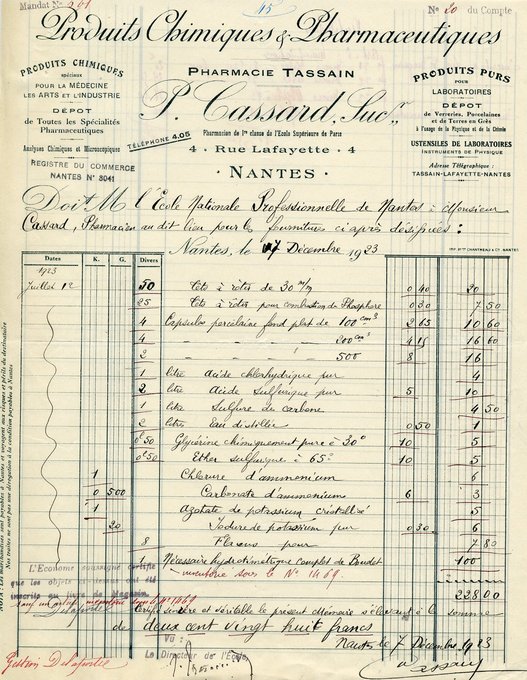 Mandat N° 261
15
N° 20 du Compte
Produits Chimiques & Pharmaceutiques
PRODUITS CHIMIQUES
spéciaux
POUR LA MÉDECINE
LES ARTS ET L'INDUSTRIE
DÉPOT
de Toutes les Spécialités
Pharmaceutiques
Analyses Chimiques et Microscopiques
REGISTRE DU COMMERCE
NANTES N° 3041
PHARMACIE TASSAIN
P. Cassard, Succr
Pharmacien de 1re classe de l'Ecole Supérieure de Paris
TÉLÉPHONE 4.05
4 - Rue Lafayette - 4
NANTES
PRODUITS PURS
POUR
LABORATOIRES
DÉPOT
de Verreries, Porcelaines
et de Terres en Grès
à l'usage de la Physique et de la Chimie
USTENSILES DE LABORATOIRES
INSTRUMENTS DE PHYSIQUE
Adresse Télégraphique :
TASSAIN-LAFAYETTE-NANTES
Doit M l'Ecole Nationale Professionnelle de Nantes à Monsieur
Cassard, Pharmacien au dit lieu pour les fournitures ci après désignées :
Nantes, le 7 Décembre 1923
Dates K. G. Divers
1923
Juillet 12 50 Têts à rôtir de 30 m/m 0 40 20
25 Têts à rôtir pour combustion de Phosphore 0 30 7 50
4 Capsules porcelaine fond plat de 100 cm3 2 65 10 60
4 - - - 200 cm3 4 15 16 60
2 - - - 500 8 16
1 litre Acide chlorhydrique pur 4
2 litre Acide Sulfurique pur 5 10
1 litre Sulfure de carbone 4 50
2 litres Eau distillée 0 50 1
0l 50 Glycérine chimiquement pure à 30° 10 5
0l 50 Ether sulfurique à 65° 10 5
1 Chlorure d'ammonium 6
0 500 Carbonate d'ammonium 6 3
1 Azotate de potassium cristallisé 5
20 Iodure de potassium pur 0 30 6
8 pour 7 80
1 Nécessaire hydrotimétrique complet de Boudet 100
inventorié sous le N° 1469
228 00
NOTA : Les marchandises sont payables à Nantes et voyagent aux risques et périls du destinataire
L'Econome soussigné certifie
que les objets ci-dessus ont été
inscrits au livre de Magasin
Certifié sincère et véritable le présent Mémoire s'élevant à la somme
de deux cent vingt huit francs
Nantes le 7 Décembre 1923
VU :
Le Directeur de l'Ecole,
Cassard